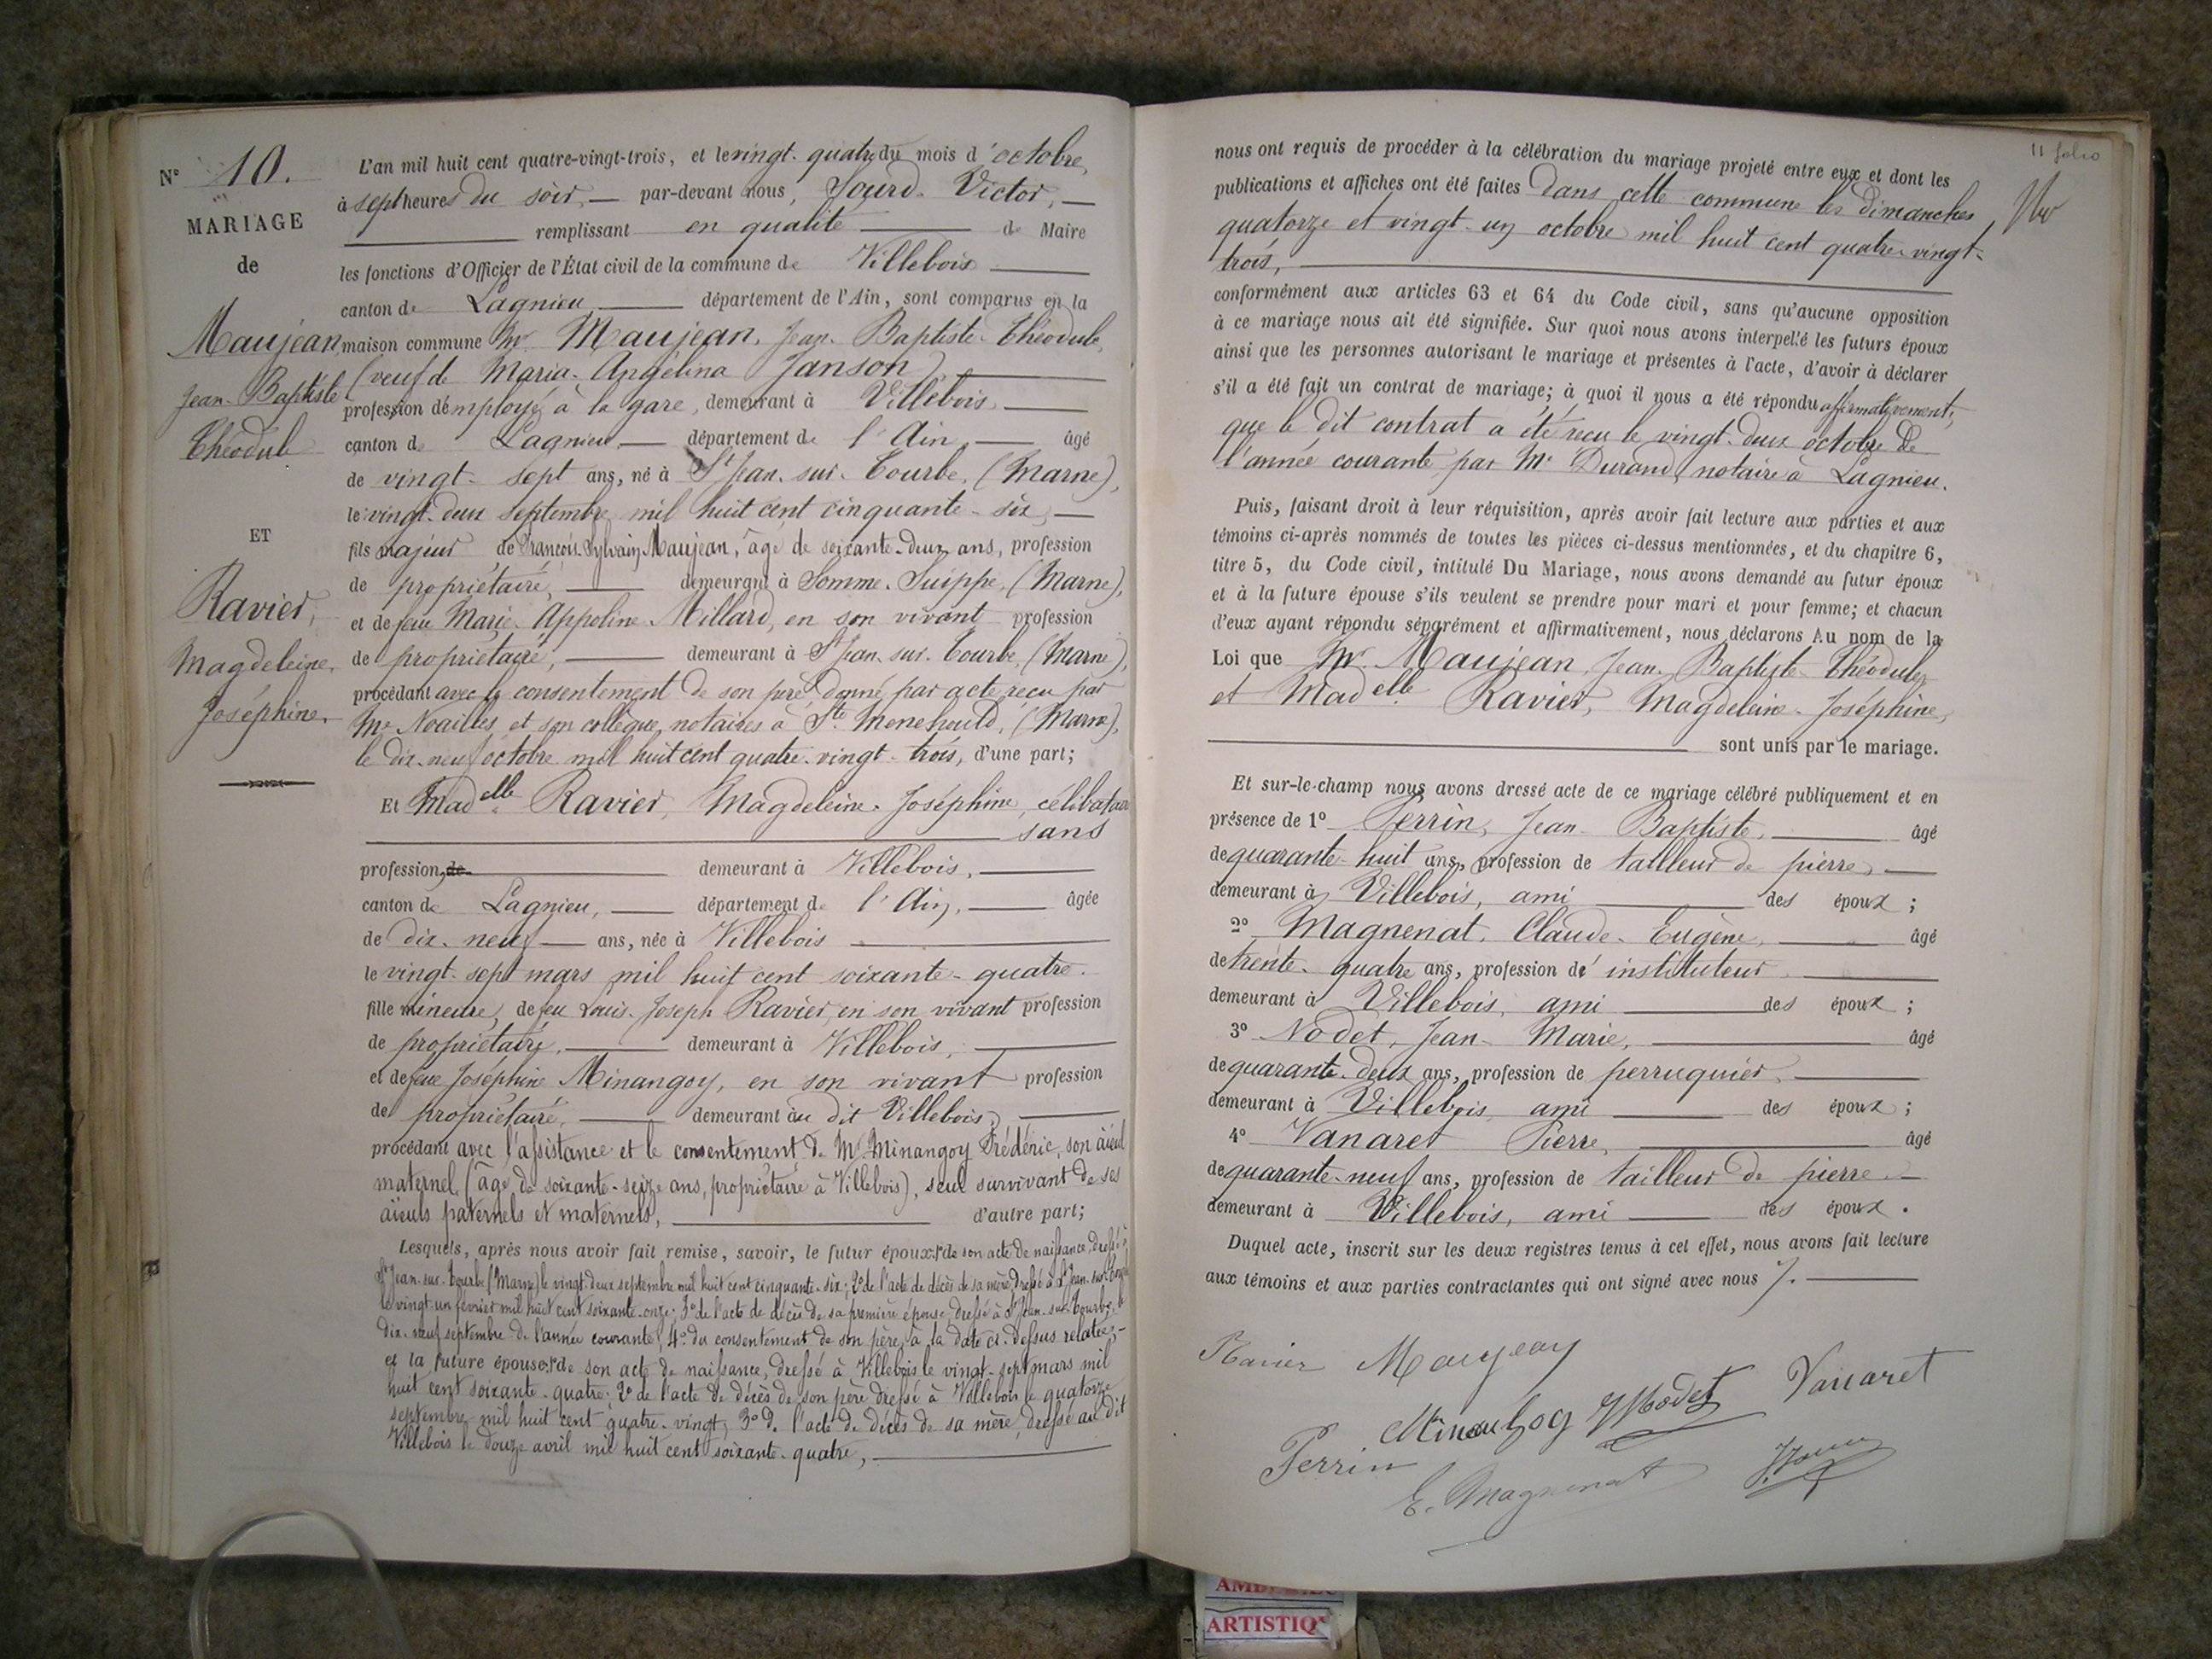 N° 10.
MARIAGE
de
Maujean
Jean-Baptiste
Théodule
ET
Ravier,
Magdeleine,
Joséphine,
L'an mil huit cent quatre-vingt-trois, et le vingt-quatre du mois d'octobre,
à sept heures du soir, — par-devant nous, Sourd Victor, —
remplissant en qualité de Maire
les fonctions d'Officier de l'État civil de la commune de Villebois
canton de Lagnieu, département de l'Ain, sont comparus en la
maison commune Mr Maujean, Jean-Baptiste-Théodule,
(veuf de Maria-Angélina Janson),
profession d'employé à la gare, demeurant à Villebois,
canton de Lagnieu département de l'Ain, âgé
de vingt-sept ans, né à St Jean-sur-Tourbe, (Marne),
le vingt-deux septembre mil huit cent cinquante-six,
fils majeur de François-Sylvain Maujean, âgé de soixante-deux ans, profession
de propriétaire, demeurant à Somme-Suippe, (Marne),
et de feue Marie-Appoline Millard, en son vivant profession
de propriétaire, demeurant à St Jean-sur-Tourbe, (Marne),
procédant avec le consentement de son père donné par acte reçu par
Me Noailles et son collègue, notaires à Ste Menehould, (Marne),
le dix-neuf octobre mil huit cent quatre-vingt-trois, d'une part;
Et Madelle Ravier, Magdeleine-Joséphine, célibataire
sans
profession, de demeurant à Villebois,
canton de Lagnieu, département de l'Ain, âgée
de dix-neuf ans, née à Villebois
le vingt-sept mars mil huit cent soixante-quatre.
fille mineure, de feu Louis-Joseph Ravier, en son vivant profession
de propriétaire, demeurant à Villebois,
et de feue Joséphine Minangoy, en son vivant profession
de propriétaire, demeurant au dit Villebois,
procédant avec l'assistance et le consentement de Mr Minangoy Frédéric, son aïeul
maternel, (âgé de soixante-seize ans, propriétaire à Villebois), seul survivant de ses
aïeuls paternels et maternels, d'autre part;
Lesquels, après nous avoir fait remise, savoir, le futur époux: 1° de son acte de naissance, dressé à
St Jean-sur-Tourbe (Marne) le vingt-deux septembre mil huit cent cinquante-six; 2° de l'acte de décès de sa mère, dressé à St Jean-sur-Tourbe
le vingt-un février mil huit cent soixante-onze; 3° de l'acte de décès de sa première épouse, dressé à St Jean-sur-Tourbe, le
dix-neuf septembre de l'année courante; 4° du consentement de son père, à la date ci-dessus relatée; -
et la future épouse: 1° de son acte de naissance, dressé à Villebois le vingt-sept mars mil
huit cent soixante-quatre; 2° de l'acte de décès de son père dressé à Villebois le quatorze
septembre mil huit cent quatre-vingt; 3° de l'acte de décès de sa mère, dressé au dit
Villebois le douze avril mil huit cent soixante-quatre,
11 folio
nous ont requis de procéder à la célébration du mariage projeté entre eux et dont les
publications et affiches ont été faites dans cette commune les dimanches
quatorze et vingt-un octobre mil huit cent quatre-vingt-
trois,
conformément aux articles 63 et 64 du Code civil, sans qu'aucune opposition
à ce mariage nous ait été signifiée. Sur quoi nous avons interpellé les futurs époux
ainsi que les personnes autorisant le mariage et présentes à l'acte, d'avoir à déclarer
s'il a été fait un contrat de mariage; à quoi il nous a été répondu affirmativement,
que le dit contrat a été reçu le vingt-deux octobre de
l'année courante par Me Durand, notaire à Lagnieu.
Puis, faisant droit à leur réquisition, après avoir fait lecture aux parties et aux
témoins ci-après nommés de toutes les pièces ci-dessus mentionnées, et du chapitre 6,
titre 5, du Code civil, intitulé Du Mariage, nous avons demandé au futur époux
et à la future épouse s'ils veulent se prendre pour mari et pour femme; et chacun
d'eux ayant répondu séparément et affirmativement, nous déclarons Au nom de la
Loi que Mr Maujean, Jean-Baptiste-Théodule,
et Madelle Ravier, Magdeleine-Joséphine,
sont unis par le mariage.
Et sur-le-champ nous avons dressé acte de ce mariage célébré publiquement et en
présence de 1° Perrin, Jean-Baptiste, âgé
de quarante-huit ans, profession de tailleur de pierre,
demeurant à Villebois, ami des époux;
2° Magnenat, Claude-Eugène, âgé
de trente-quatre ans, profession d'instituteur
demeurant à Villebois, ami des époux;
3° Nodet, Jean-Marie, âgé
de quarante-deux ans, profession de perruquier,
demeurant à Villebois, ami des époux;
4° Vanaret Pierre, âgé
de quarante-neuf ans, profession de tailleur de pierre
demeurant à Villebois, ami des époux.
Duquel acte, inscrit sur les deux registres tenus à cet effet, nous avons fait lecture
aux témoins et aux parties contractantes qui ont signé avec nous
Ravier Maujean
Vanaret
Perrin
E. Magnenat
ARTISTIQ